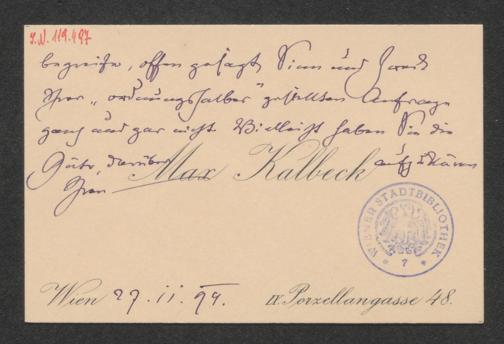 I.N. 119.497
begreife, offen gesagt, Sinn und Zweck
Ihrer „ordnungshalber" gestellten Anfrage
ganz und gar nicht. Vielleicht haben Sie die
Güte, darüber aufzuklären
Ihren Max Kalbeck
WIENER STADTBIBLIOTHEK
* 7 *
Wien 27. II. 94. IX. Porzellangasse 48.